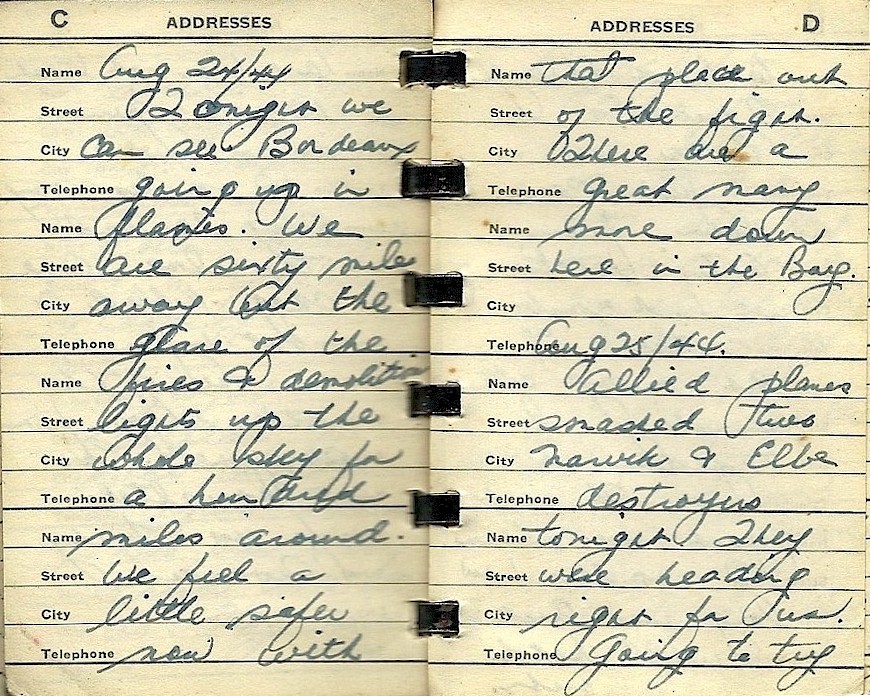 C ADDRESSES
Name Aug 24/44
Street Tonight we
City can see Bordeaux
Telephone going up in
Name flames. We
Street are sixty miles
City away but the
Telephone glare of the
Name fires & demolition
Street lights up the
City whole sky for
Telephone a hundred
Name miles around.
Street We feel a
City little safer
Telephone now with
ADDRESSES D
Name that place out
Street of the fight.
City There are a
Telephone great many
Name more down
Street here in the Bay.
City
Telephone Aug 25/44.
Name Allied planes
Street smashed two
City Narvik & Elbe
Telephone destroyers
Name tonight. They
Street were heading
City right for us.
Telephone Going to try